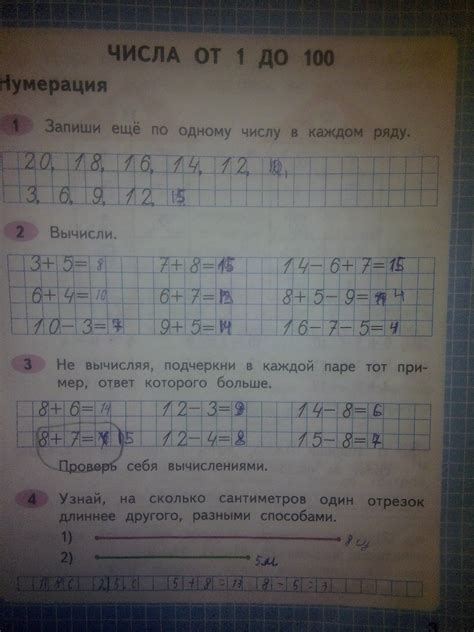 ЧИСЛА ОТ 1 ДО 100
Нумерация
1 Запиши ещё по одному числу в каждом ряду.
20, 18, 16, 14, 12, 10,
3, 6, 9, 12, 15
2 Вычисли.
3+5=8 7+8=15 14-6+7=15
6+4=10 6+7=13 8+5-9=4
10-3=7 9+5=14 16-7-5=4
3 Не вычисляя, подчеркни в каждой паре тот при-
мер, ответ которого больше.
8+6=14 12-3=9 14-8=6
8+7=15 12-4=8 15-8=7
Проверь себя вычислениями.
4 Узнай, на сколько сантиметров один отрезок
длиннее другого, разными способами.
1) 8
2) 5
5+8=13 8-5=3